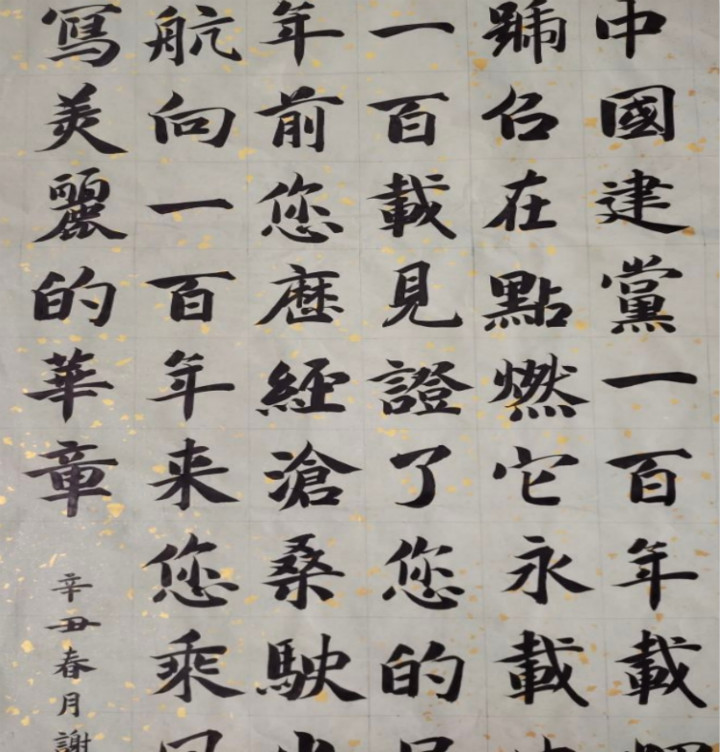 中國建黨一百年載
號召在點燃它永載
一百載見證了您的
年前您歷經滄桑駛
航向一百年来您乘
寫美麗的華章
辛丑春月謝